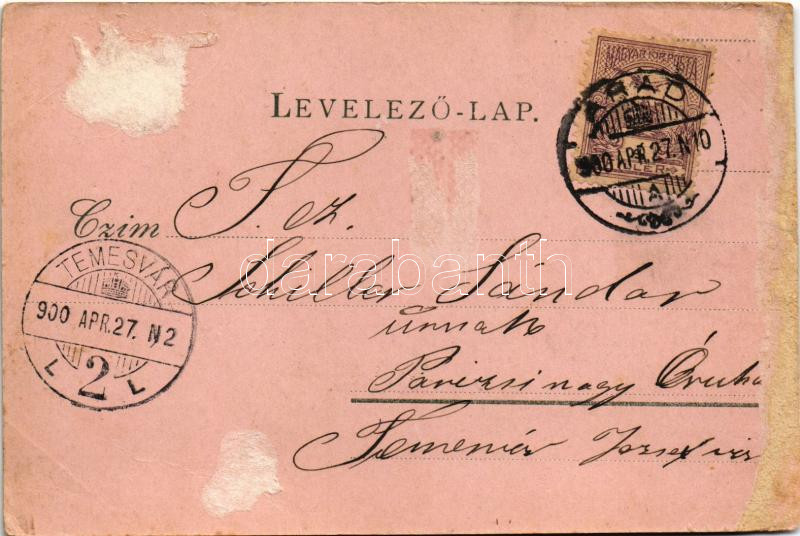 MAGYAR KIR. POSTA
ARAD
900 APR. 27. N10
A
LEVELEZŐ-LAP.
Czim T. cz.
Schiller Sándor
úrnak
Párizsi nagy Áruhá
Temesvár Józsefvár
TEMESVÁR
900 APR. 27. N2
L 2 L
darabanth